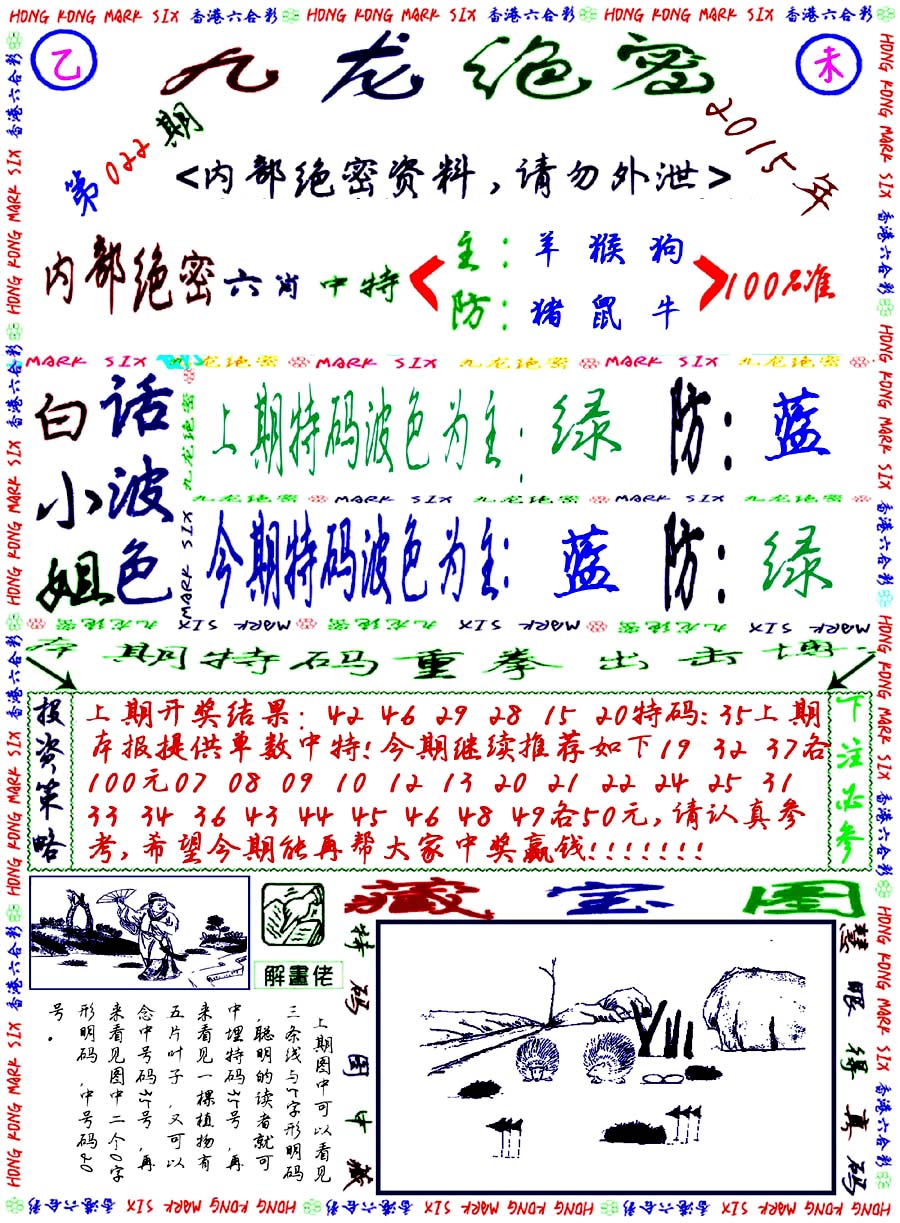 HONG KONG MARK SIX 香港六合彩 HONG KONG MARK SIX 香港六合彩 HONG KONG MARK SIX 香港六合彩
乙
九龙绝密
未
第022期
2015年
<内部绝密资料，请勿外泄>
内部绝密六肖中特
主：羊猴狗
防：猪鼠牛
100%准
MARK SIX 九龙绝密 MARK SIX 九龙绝密 MARK SIX 九龙绝密
白话
小波
姐色
上期特码波色为主：绿 防：蓝
九龙绝密 MARK SIX 九龙绝密 MARK SIX 九龙绝密
今期特码波色为主：蓝 防：绿
本期特码重拳出击博
投资策略
上期开奖结果：42 46 29 28 15 20特码：35上期
本报提供单数中特！今期继续推荐如下19 32 37各
100元07 08 09 10 12 13 20 21 22 24 25 31
33 34 36 43 44 45 46 48 49各50元，请认真参
考，希望今期能再帮大家中奖赢钱！！！！！！！
下注必参
解畫佬
藏宝图
上期图中可以看见
三条线与5字形明码
，聪明的读者就可
中埋特码35号，再
来看见一棵植物有
五片叶子，又可以
念中号码35号，再
来看见图中二个0字
形明码，中号码20
号。
特码图中藏
慧眼得真码